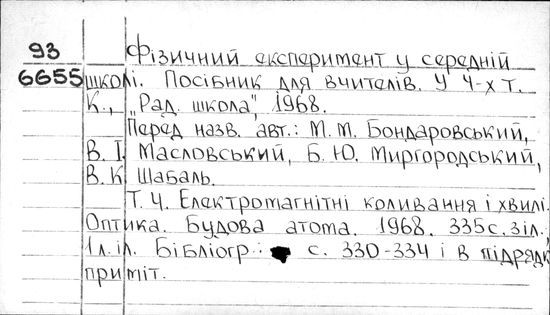 93 Фізичний експеримент у середній
6655 школі. Посібник для вчителів. У 4-х т.
К., „Рад. школа", 1968.
Перед назв. авт.: М. М. Бондаровський,
В. І. Масловський, Б. Ю. Миргородський,
В. К. Шабаль.
Т. 4. Електромагнітні коливання і хвилі.
Оптика. Будова атома. 1968. 335 с. з іл.,
1 л. іл. Бібліогр.: с. 330-334 і в підрядк.
приміт.